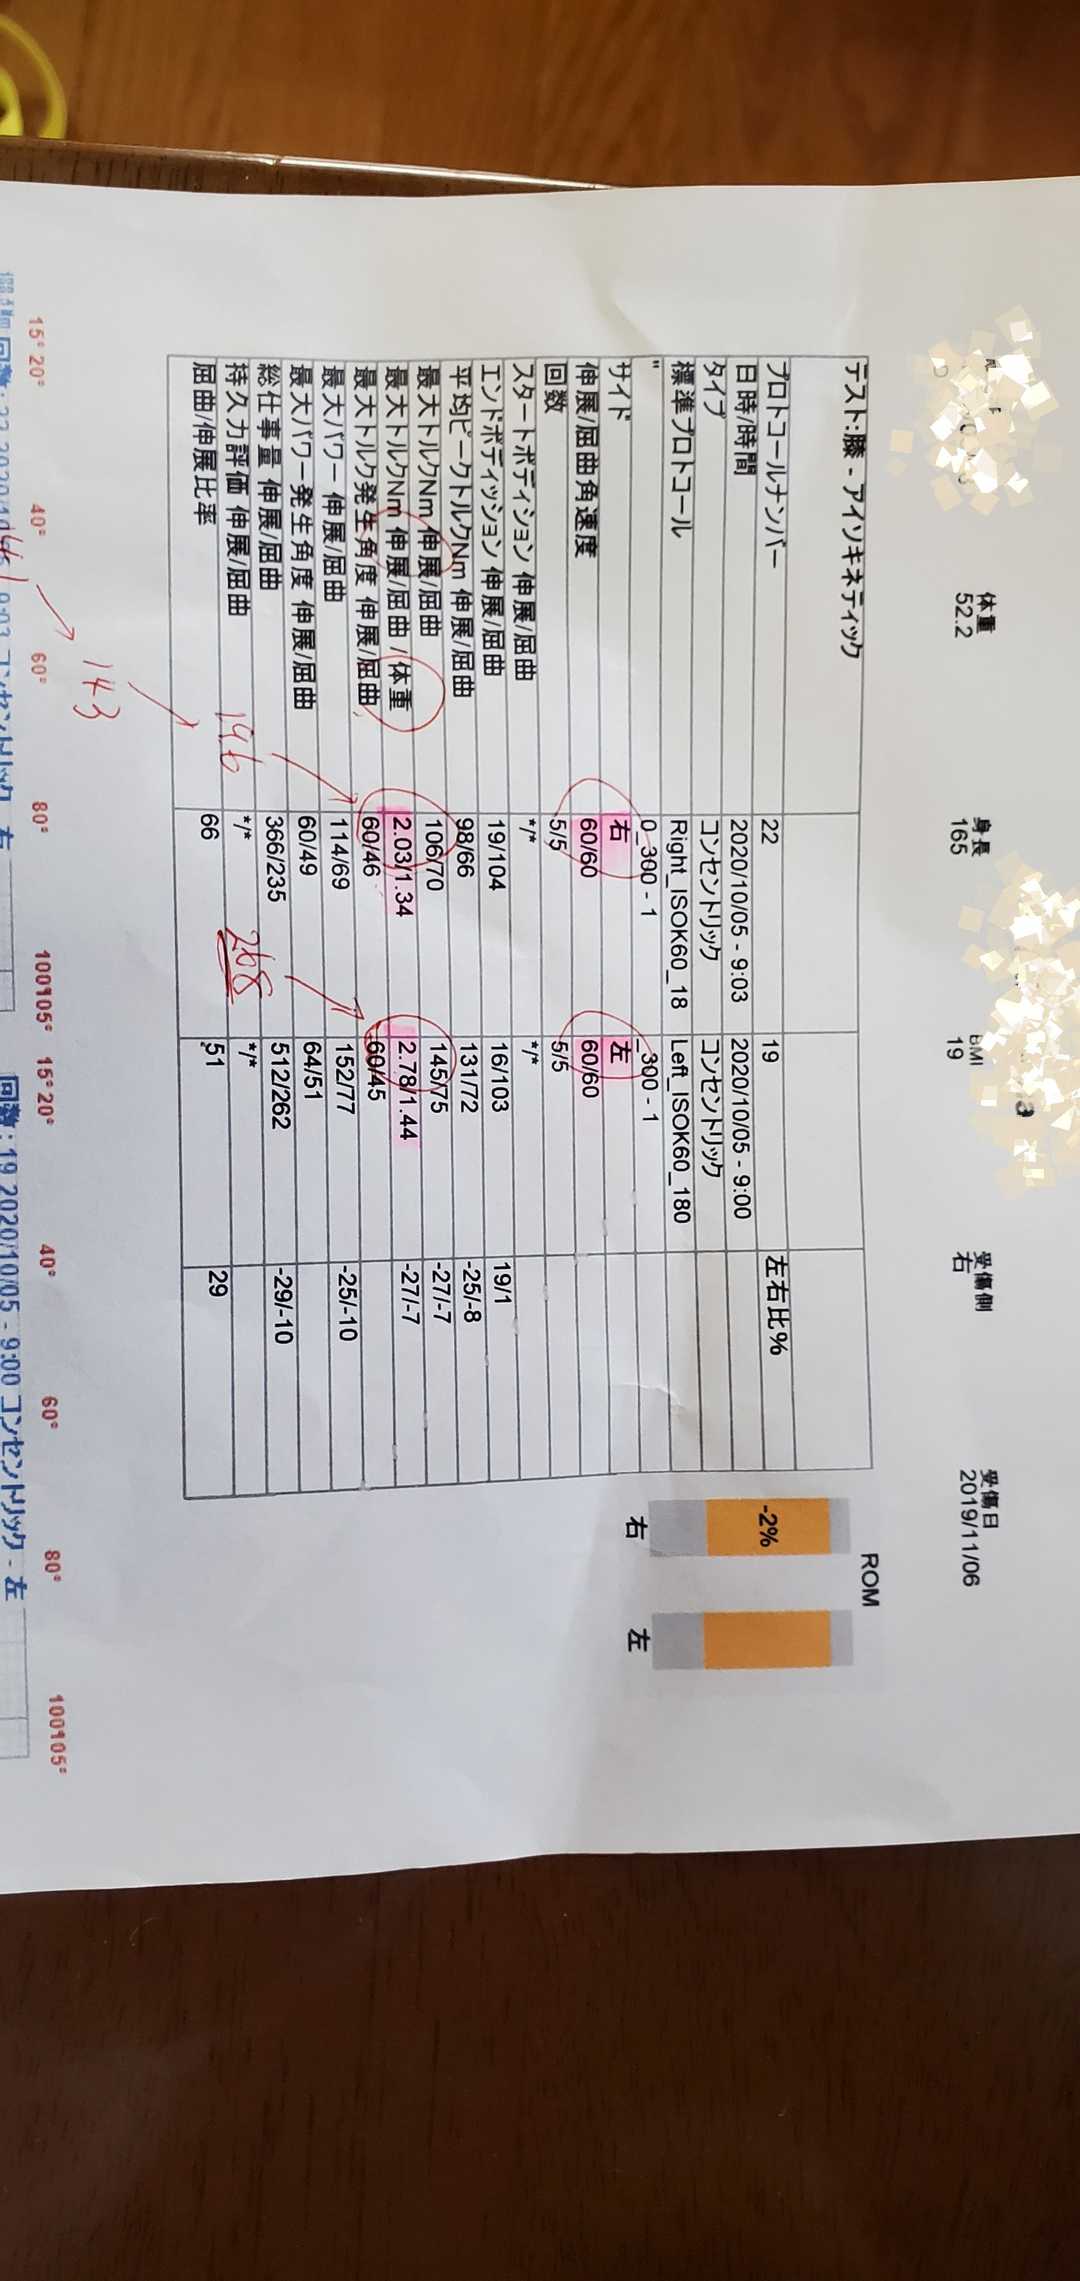 体重 身長 BMI 受傷側 受傷日
52.2 165 19 右 2019/11/06
テスト:膝 - アイソキネティック
ROM
プロトコールナンバー 22 19 左右比%
日時/時間 2020/10/05 - 9:03 2020/10/05 - 9:00
-2%
タイプ コンセントリック コンセントリック
標準プロトコール Right_ISOK60_18 Left_ISOK60_180
" 0_300 - 1 _300 - 1
サイド 右 左
右 左
伸展/屈曲角速度 60/60 60/60
回数 5/5 5/5
スタートポディション 伸展/屈曲 */* */*
エンドポディッション 伸展/屈曲 19/104 16/103 19/1
平均ピークトルクNm 伸展/屈曲 98/66 131/72 -25/-8
最大トルクNm 伸展/屈曲 106/70 145/75 -27/-7
最大トルクNm 伸展/屈曲 / 体重 2.03/1.34 2.78/1.44 -27/-7
最大トルク発生角度 伸展/屈曲 60/46 60/45
最大パワー 伸展/屈曲 114/69 152/77 -25/-10
最大パワー発生角度 伸展/屈曲 60/49 64/51
総仕事量 伸展/屈曲 366/235 512/262 -29/-10
持久力評価 伸展/屈曲 */* */*
196 268
屈曲/伸展比率 66 51 29
143
15° 20° 40° 60° 80° 100105° 15° 20° 40° 60° 80° 100105°
9:03 コンセントリック 右 回数: 19 2020/10/05 - 9:00 コンセントリック - 左